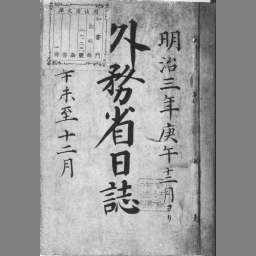 明治三年庚午十二月ヨリ
外務省日誌
午未至十二月